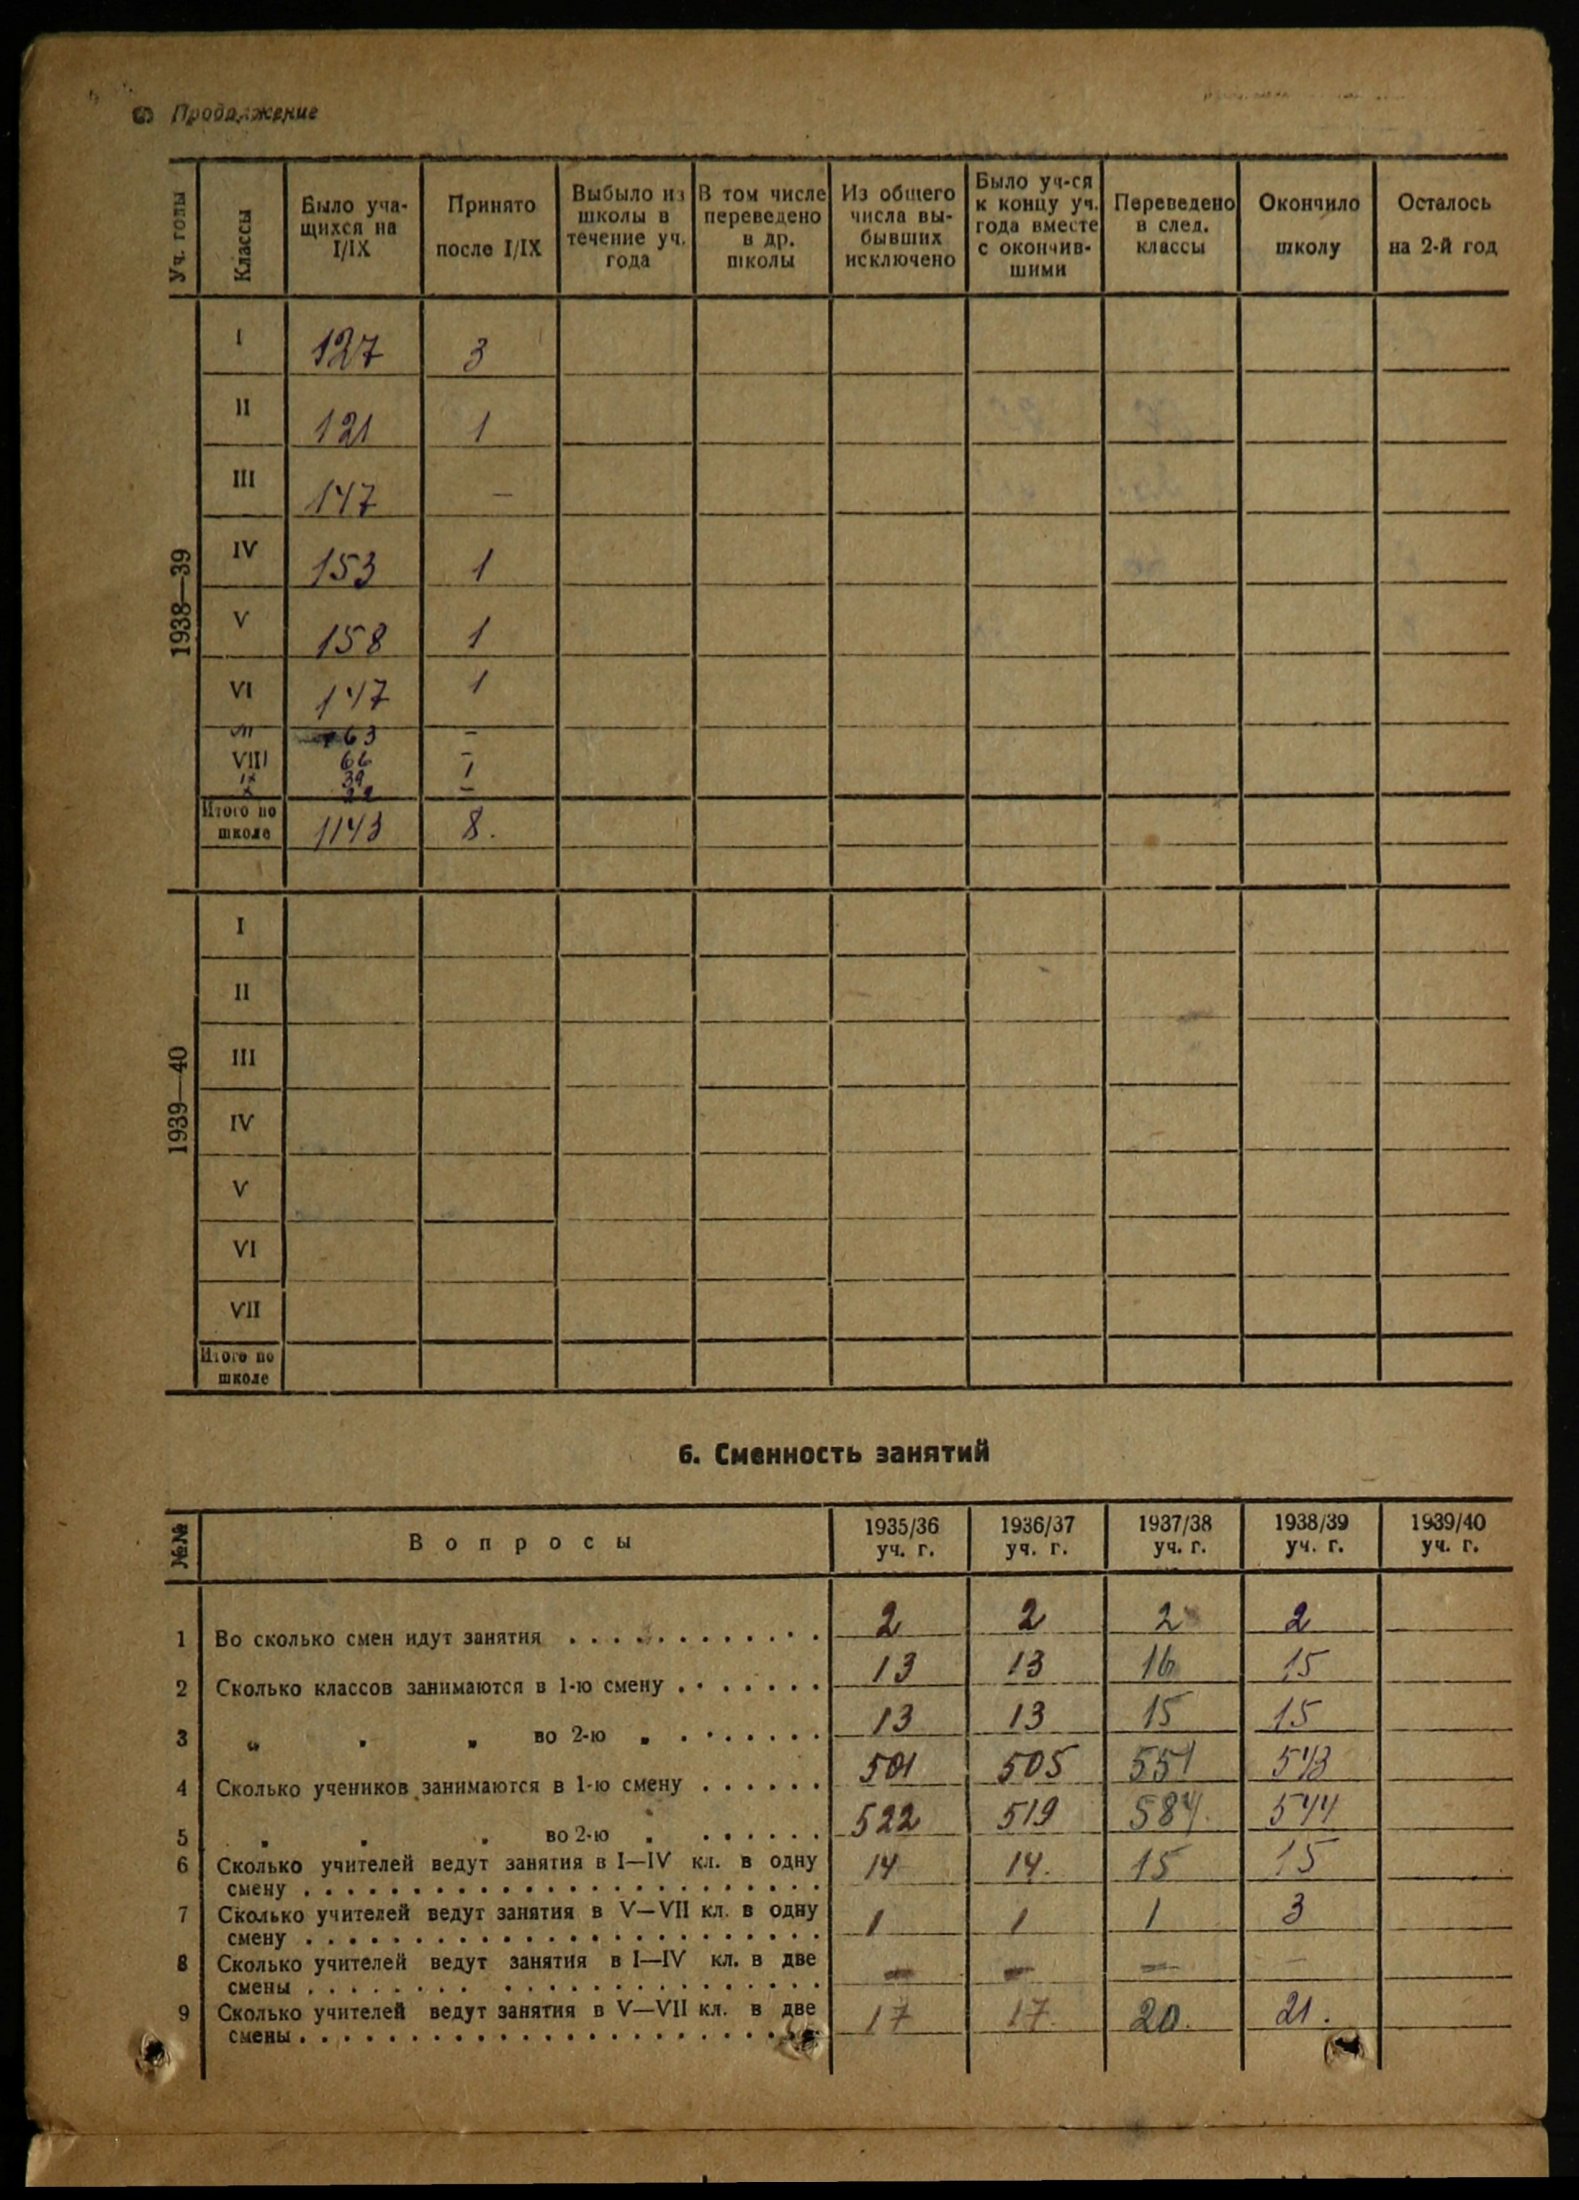 Продолжение
Уч. годы | Классы | Было учащихся на I/IX | Принято после I/IX | Выбыло из школы в течение уч. года | В том числе переведено в др. школы | Из общего числа выбывших исключено | Было уч-ся к концу уч. года вместе с окончившими | Переведено в след. классы | Окончило школу | Осталось на 2-й год
1938—39
I 127 3
II 121 1
III 147 —
IV 153 1
V 158 1
VI 147 1
VII 63 —
VIII 66 —
IX 39 1
X —
Итого по школе 1143 8.
1939—40
I
II
III
IV
V
VI
VII
Итого по школе
6. Сменность занятий
№№ | Вопросы | 1935/36 уч. г. | 1936/37 уч. г. | 1937/38 уч. г. | 1938/39 уч. г. | 1939/40 уч. г.
1 Во сколько смен идут занятия 2 2 2 2
2 Сколько классов занимаются в 1-ю смену 13 13 16 15
3 „ „ „ во 2-ю „ 13 13 15 15
4 Сколько учеников занимаются в 1-ю смену 501 505 551 543
5 „ „ „ во 2-ю „ 522 519 584 544
6 Сколько учителей ведут занятия в I—IV кл. в одну смену 14 14. 15 15
7 Сколько учителей ведут занятия в V—VII кл. в одну смену 1 1 1 3
8 Сколько учителей ведут занятия в I—IV кл. в две смены — — — —
9 Сколько учителей ведут занятия в V—VII кл. в две смены 17 17. 20. 21.